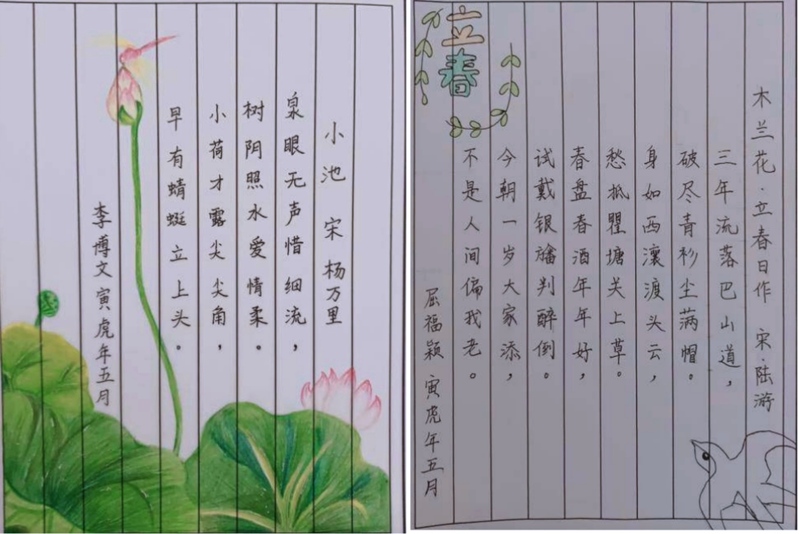 小池 宋 杨万里
泉眼无声惜细流，
树阴照水爱情柔。
小荷才露尖尖角，
早有蜻蜓立上头。
李博文 寅虎年五月
木兰花·立春日作 宋·陆游
三年流落巴山道，
破尽青衫尘满帽。
身如西瀼渡头云，
愁抵瞿塘关上草。
春盘春酒年年好，
试戴银旛判醉倒。
今朝一岁大家添，
不是人间偏我老。
立春
屈福颖 寅虎年五月